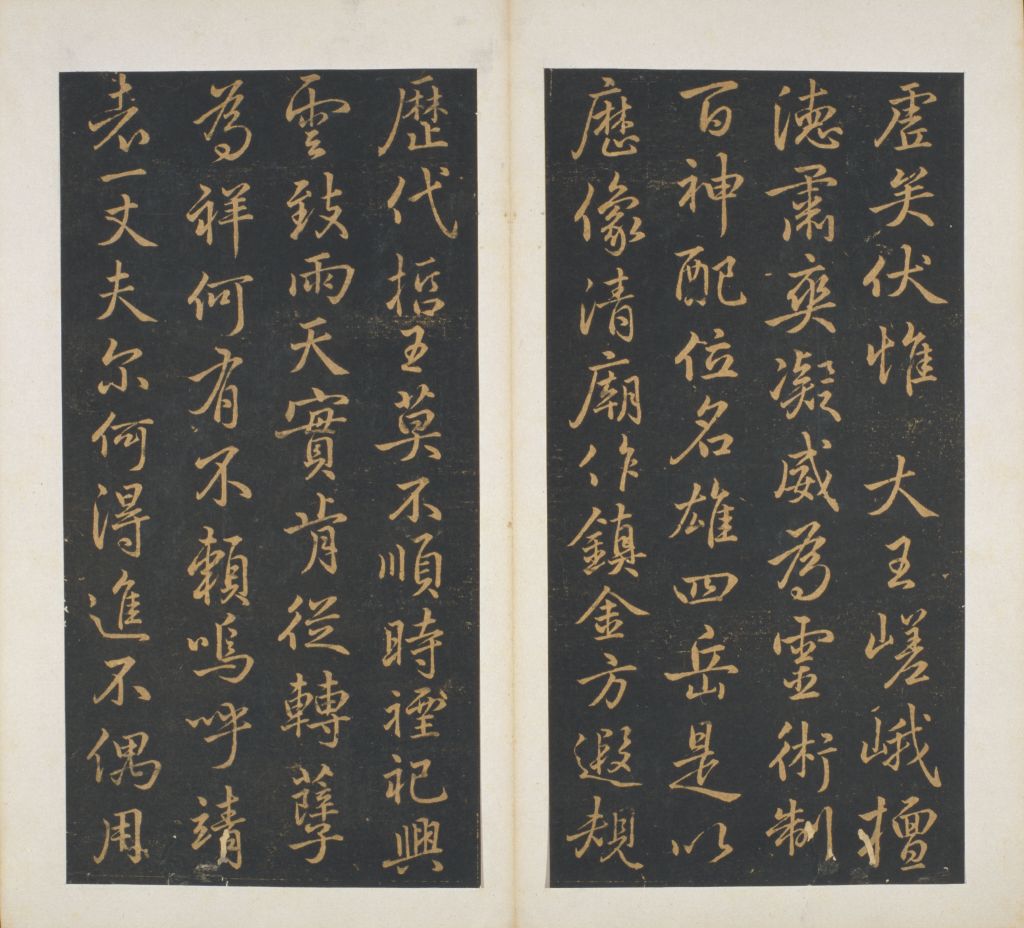 虚矣伏惟　大王嵯峨擅
德肅爽凝威為靈術制
百神配位名雄四岳是以
歷像清廟作鎮金方遐規
歷代哲王莫不順時禋祀興
雲致雨天實肯從轉孽
為祥何有不賴嗚呼靖
者一丈夫尔何得進不偶用